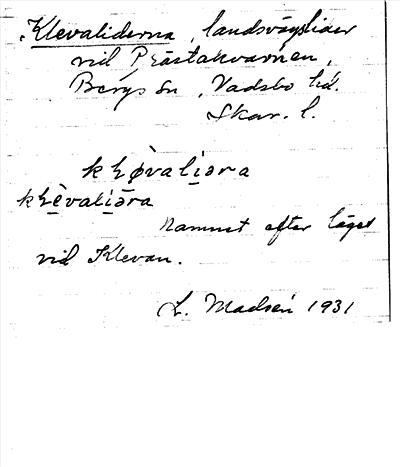 Klevaliderna, landsvägslider
vid Prästakvarnen,
Bergs sn, Vadsbo hd.
Skar. l.
kɫøvaliəra
kɫèvaliəra
Namnet efter läget
vid Klevan.
L. Madsén 1931